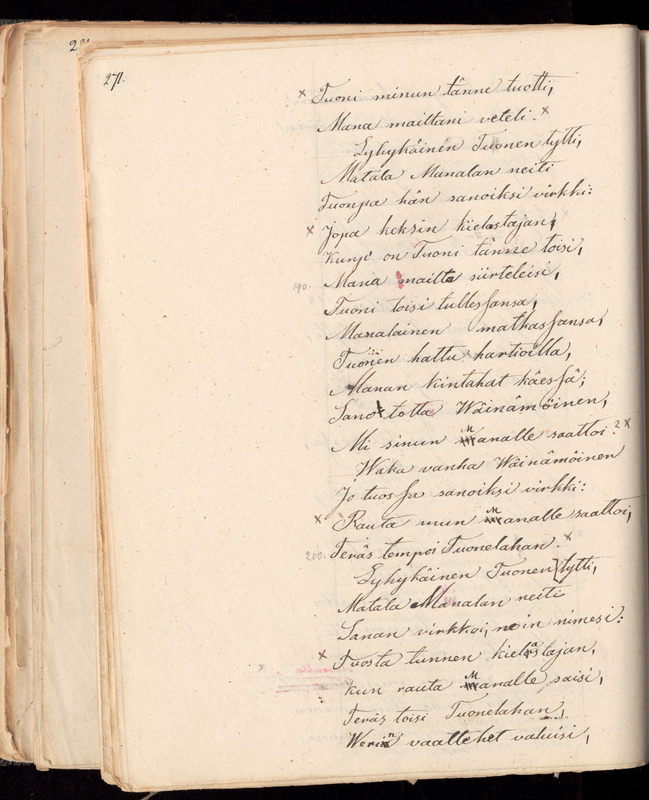 271.
× Tuoni minun tänne tuotti,
Mana maittani veteli. ×
Lyhykäinen Tuonen tytti,
Matala Manalan neiti
Tuonpa hän sanoiksi virkki:
× Jopa keksin kielastajan;
Kunp' on Tuoni tänne toisi,
190. Mana maitta siirteleisi,
Tuoni toisi tullessansa,
Manalainen matkassansa,
Tuonen hattu hartioilla,
Manan kintahat käessä;
Sano totta Wäinämöinen,
Mi sinun Manalle saattoi? ×
Waka vanha Wäinämöinen
Jo tuossa sanoiksi virkki:
× Rauta mun Manalle saattoi,
200. Teräs tempoi Tuonelahan. ×
Lyhykäinen Tuonen tytti,
Matala Manalan neiti
Sanan virkkoi, noin nimesi:
× Tuosta tunnen kielastajan,
Kun rauta Manalle saisi,
Teräs toisi Tuonelahan,
Werin vaattehet valuisi,